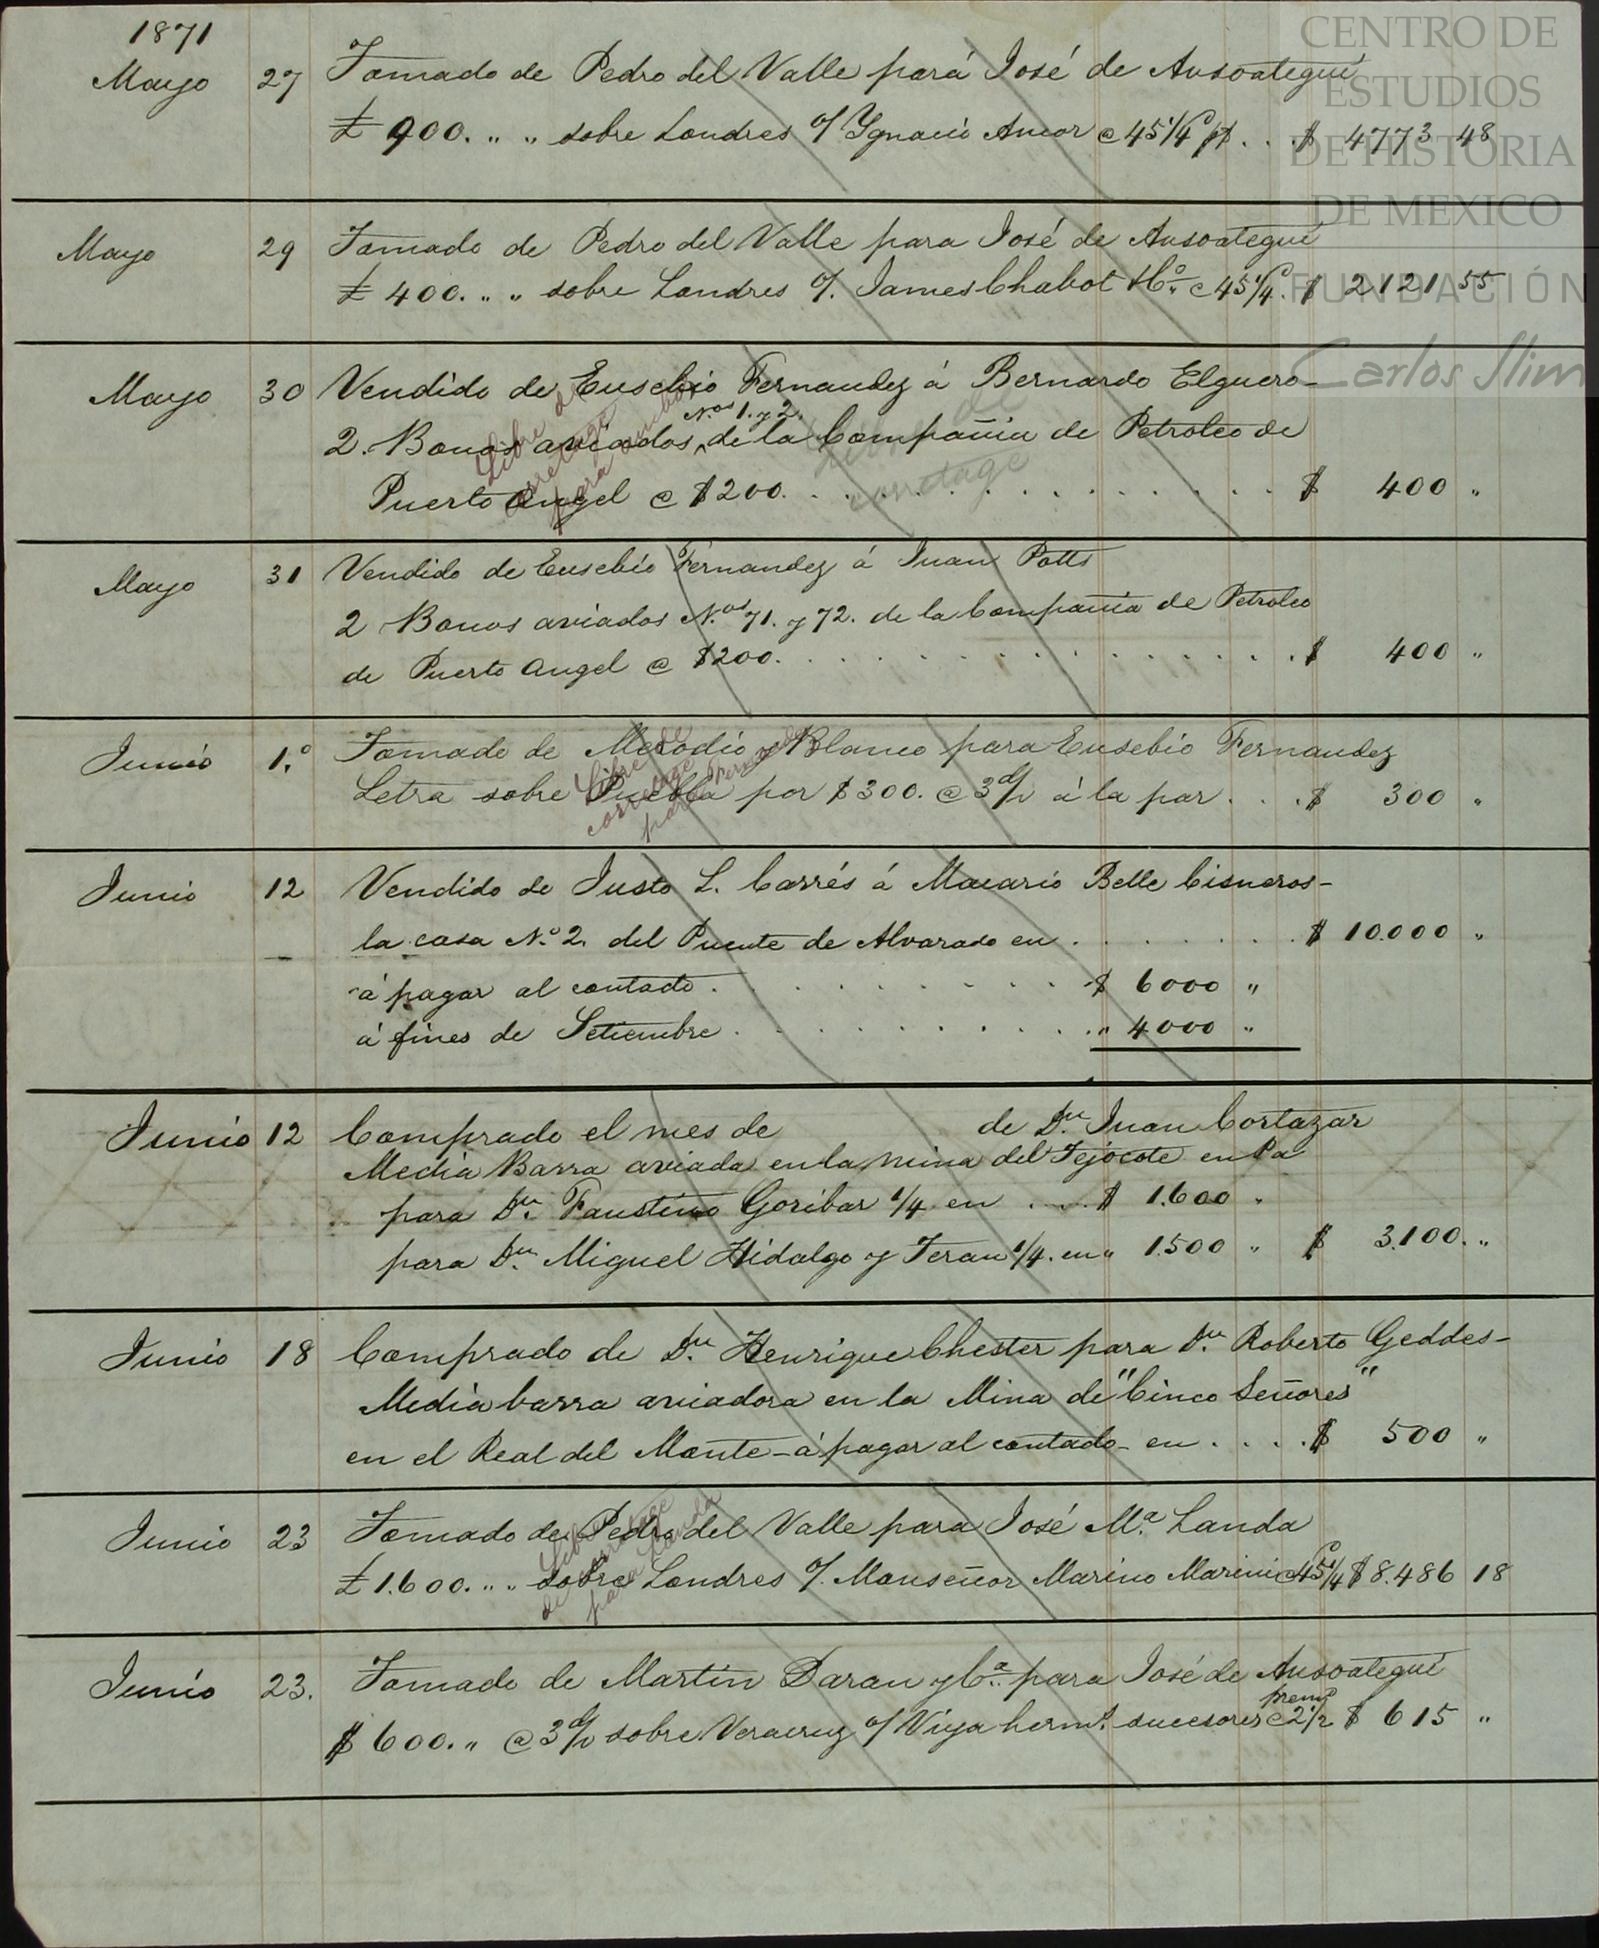 1871
Mayo 27 Tomado de Pedro del Valle para José de Ansoategui
£ 900. „ „ sobre Londres o/ Ygnacio Amor @ 45 1/4 $ 4773 48
Mayo 29 Tomado de Pedro del Valle para José de Ansoategui
£ 400. „ „ sobre Londres o/. James Chabot @ 45 1/4. $ 2121 55
Mayo 30 Vendido de Eusebio Fernandez á Bernardo Elguero-
Nos. 1. y 2.
2. Bonos aviados, de la Compañia de Petroleo de
Puerto Angel @ $200. $ 400 „
Libre de
corretage
para ambos
Libre de
corretage
Mayo 31 Vendido de Eusebio Fernandez á Juan Potts
2 Bonos aviados Nos. 71. y 72. de la Compañia de Petroleo
de Puerto Angel @ $200. $ 400 „
Junio 1.° Tomado de Merodio y Blanco para Eusebio Fernandez
Letra sobre Puebla por $300. @ 3 d/v á la par . . . $ 300 „
Libre de
corretage
para Fernandez
Junio 12 Vendido de Justo L. Carrés á Macario Belle Cisneros-
la casa N.° 2. del Puente de Alvarado en . . . $ 10.000 „
á pagar al contado . . . $ 6000 „
á fines de Setiembre . . . „ 4000 „
Junio 12 Comprado el mes de de Dn. Juan Cortazar
Media Barra aviada en la mina del Tejocote en Pa
para Dn. Faustino Goribar 1/4 en . . . $ 1.600 „
para Dn. Miguel Hidalgo y Teran 1/4. en „ 1.500 „ $ 3.100. „
Junio 18 Comprado de Dn Henrique Chester para Dn. Roberto Geddes-
Media barra aviadora en la Mina de "Cinco Señores"
en el Real del Monte - á pagar al contado - en . . . . $ 500 „
Junio 23 Tomado de Pedro del Valle para José M.a Landa
£ 1.600. „ „ sobre Londres o/. Monseñor Marino Marini @ 45 1/4 $ 8.486 18
Libre
de corretage
para Landa
Junio 23. Tomado de Martin Daran y C.a para José de Ansoategui
$ 600. „ @ 3 d/v sobre Veracruz o/ Viya herms. sucesores @ 2 1/2 prem. $ 615 „
CENTRO DE
ESTUDIOS
DE HISTORIA
DE MEXICO
FUNDACIÓN
Carlos Slim